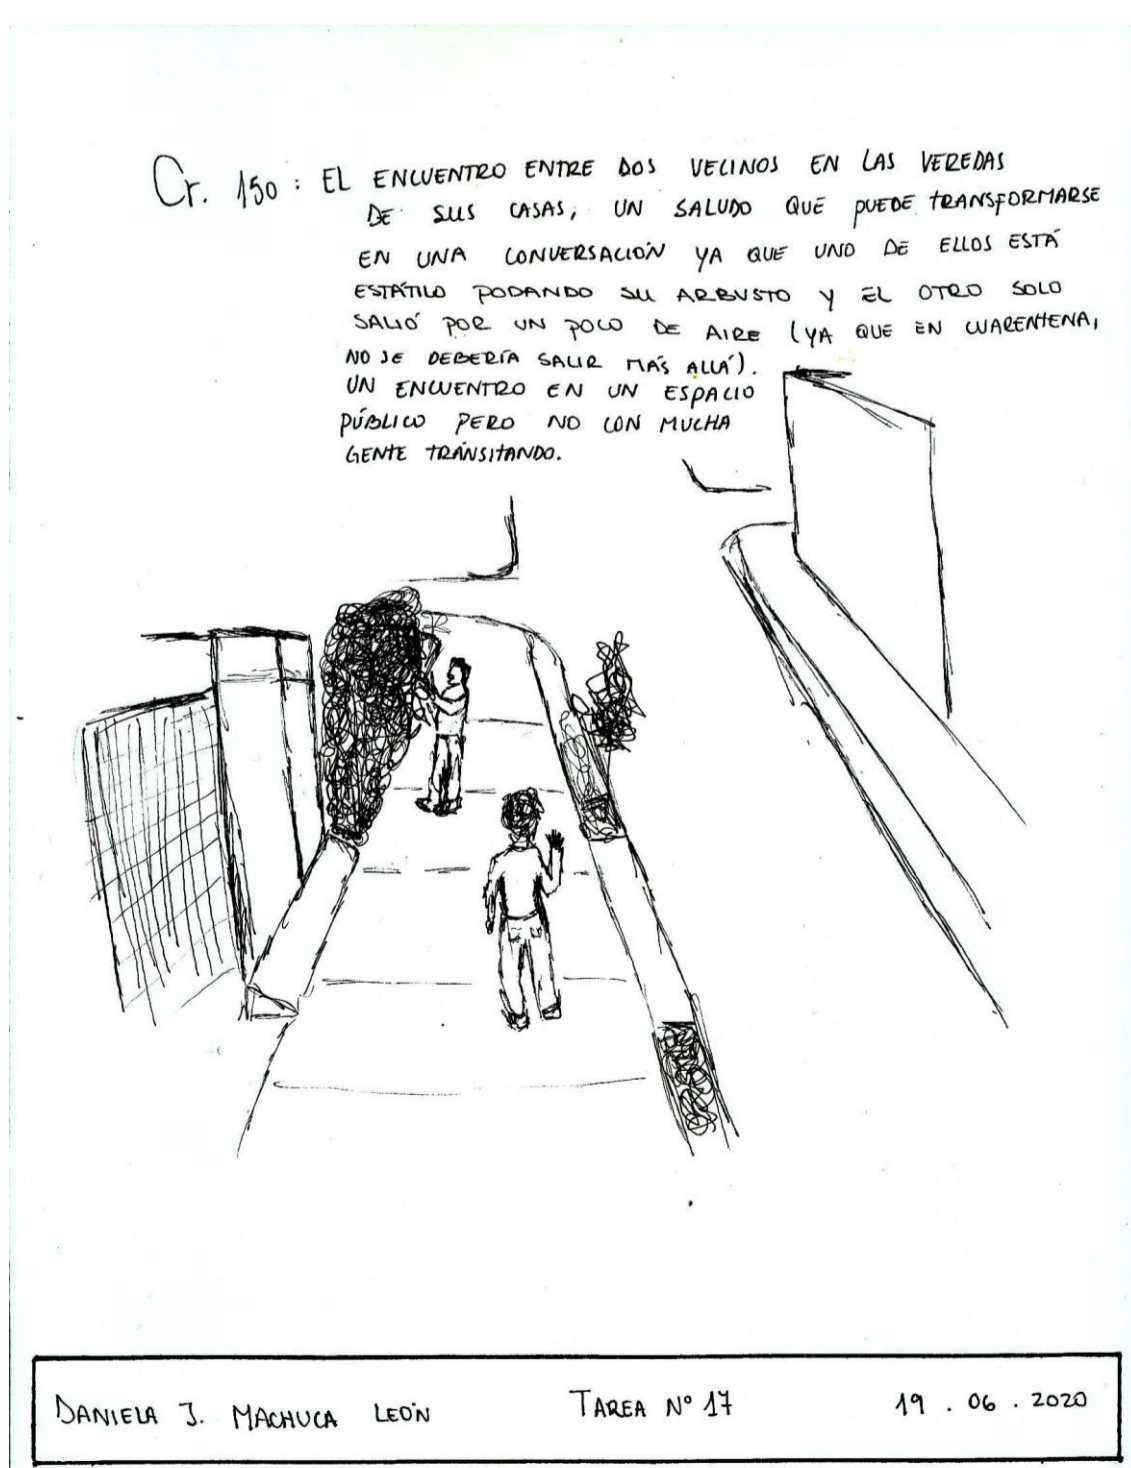 Cr. 150 : EL ENCUENTRO ENTRE DOS VECINOS EN LAS VEREDAS
DE SUS CASAS, UN SALUDO QUE PUEDE TRANSFORMARSE
EN UNA CONVERSACIÓN YA QUE UNO DE ELLOS ESTÁ
ESTÁTICO PODANDO SU ARBUSTO Y EL OTRO SOLO
SALIÓ POR UN POCO DE AIRE (YA QUE EN CUARENTENA,
NO SE DEBERÍA SALIR MÁS ALLÁ).
UN ENCUENTRO EN UN ESPACIO
PÚBLICO PERO NO CON MUCHA
GENTE TRÁNSITANDO.
DANIELA J. MACHUCA LEÓN TAREA Nº 17 19 . 06 . 2020